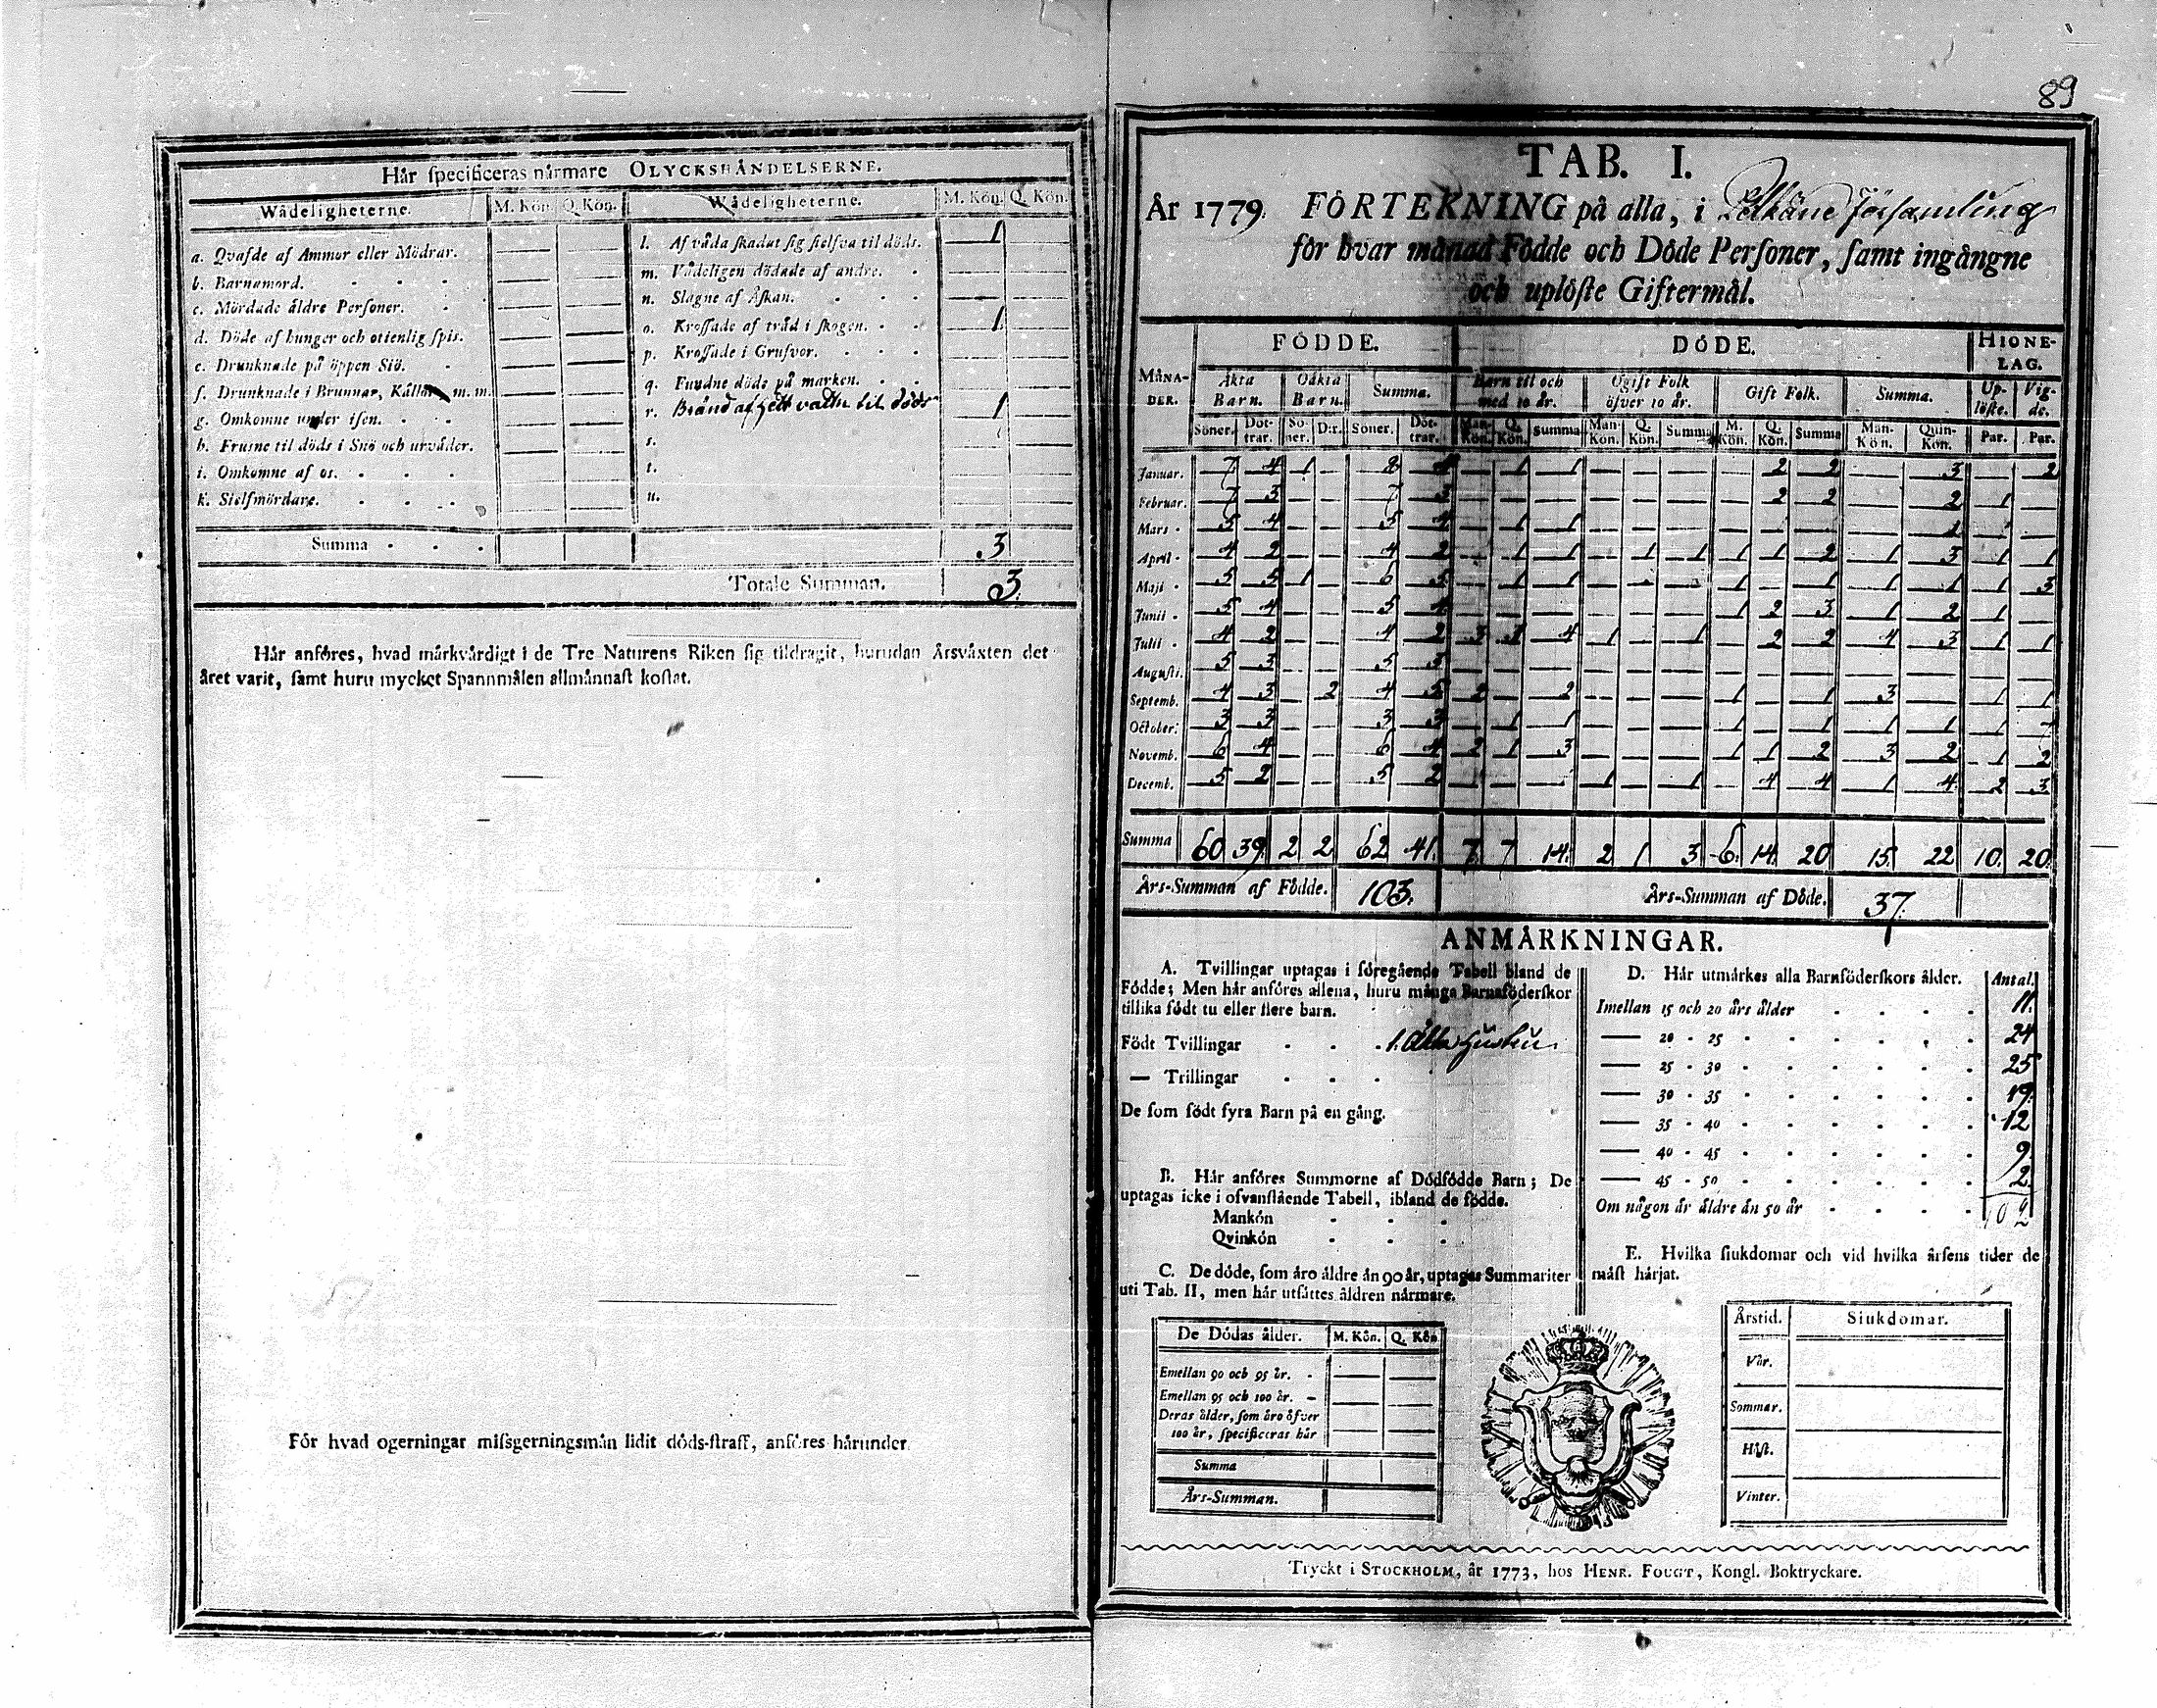 89
Hår specificeras nårmare OLYCKSHÅNDELSERNE.
Wådeligheterne. M. Kön. Q. Kön. Wådeligheterne. M. Kön. Q. Kön.
a. Qvafde af Ammor eller Mödrar. — —
b. Barnamord. — —
c. Mördade äldre Personer. — —
d. Döde af hunger och otienlig spis. — —
e. Drunknade på öppen Siö. — —
f. Drunknade i Brunnar, Källor m. m. — —
g. Omkomne under isen. — —
h. Frusne til döds i Snö och urväder. — —
i. Omkomne af os. — —
k. Sielfmördare. — —
l. Af våda skadat sig sielfva til döds. 1 —
m. Vådeligen dödade af andre. — —
n. Slagne af Åskan. — —
o. Krossade af träd i skogen. 1 —
p. Krossade i Grufvor. — —
q. Fundne döde på marken. — —
r. Bränd af hett vatn til döds 1 —
s.
t.
u.
Summa 3
Totale Summan. 3.
Hår anföres, hvad mårkvårdigt i de Tre Naturens Riken sig tildragit, hurudan Årsvåxten det
året varit, samt huru mycket Spannmålen allmånnast kostat.
För hvad ogerningar missgerningsmån lidit döds-straff, anföres hårunder
TAB. I.
År 1779. FÖRTEKNING på alla, i Pelkäne Församling
för hvar månad Födde och Döde Personer, samt ingångne
och uplöste Giftermål.
MÅNADER. FÖDDE. DÖDE. HIONELAG.
Äkta Barn. Oäkta Barn. Summa. Barn til och med 10 år. Ogift Folk öfver 10 år. Gift Folk. Summa. Uplöste. Vigde.
Söner. Döttrar. Söner. D:r. Söner. Döttrar. Man-Kön. Q. Kön. Summa Man-Kön. Q. Kön. Summa M. Kön. Q. Kön. Summa Man-Kön. Quin-Kön. Par. Par.
Januar. 7 4 1 — 8 4 — 1 1 — — — — 2 2 — 3 — 2
Februar. 7 3 — — 7 3 — — — — — — — 2 2 — 2 1 —
Mars 5 4 — — 5 4 — 1 1 — — — — — — — 1 —
April 4 2 — — 4 2 — 1 1 — 1 1 1 1 2 1 3 1 1
Maji 5 5 1 — 6 5 — 1 1 — — — 1 — 1 1 1 1 3
Junii 5 4 — — 5 4 — — — — — — 1 2 3 1 2 1 —
Julii 4 2 — — 4 2 3 1 4 1 — 1 — 2 2 4 3 1 1
Augusti. 5 3 — — 5 3 — — — — — — — — — — — — —
Septemb. 4 3 — 2 4 5 2 — 2 — — — 1 — 1 3 — 1 1
October. 3 3 — — 3 3 — 1 1 — — — 1 — 1 1 1 1 7
Novemb. 6 4 — — 6 4 2 1 3 — — — 1 1 2 3 2 1 2
Decemb. 5 2 — — 5 2 — — — 1 — 1 — 4 4 1 4 2 3
Summa 60 39 2 2 62 41. 7. 7 14. 2 1 3 6. 14 20 15. 22 10. 20.
Års-Summan af Födde. 103. Års-Summan af Döde. 37.
ANMÅRKNINGAR.
A. Tvillingar uptagas i föregående Tabell bland de
Födde; Men hår anföres allena, huru många Barnaföderskor
tillika födt tu eller flere barn.
Födt Tvillingar 1.
— Trillingar
De som födt fyra Barn på en gång.
B. Hår anföres Summorne af Dödfödde Barn; De
uptagas icke i ofvanstående Tabell, ibland de födde.
Mankön
Qvinkön
C. De döde, som åro åldre ån 90 år, uptages Summariter
uti Tab. II, men hår utsåttes åldren nårmare.
De Dödas ålder. M. Kön. Q. Kön
Emellan 90 och 95 år. — —
Emellan 95 och 100 år. — —
Deras ålder, som äro öfver
100 år, specificeras här — —
Summa
Års-Summan.
D. Hår utmårkes alla Barnföderskors ålder. Antal.
Imellan 15 och 20 års ålder 11.
— 20 - 25 24
— 25 - 30 25
— 30 - 35 19.
— 35 - 40 12
— 40 - 45 9.
— 45 - 50 2.
Om någon är äldre än 50 år 102
E. Hvilka siukdomar och vid hvilka årsens tider de
måst hårjat.
Årstid. Siukdomar.
Vår.
Sommar.
Höst.
Vinter.
Tryckt i STOCKHOLM, år 1773, hos HENR. FOUGT, Kongl. Boktryckare.